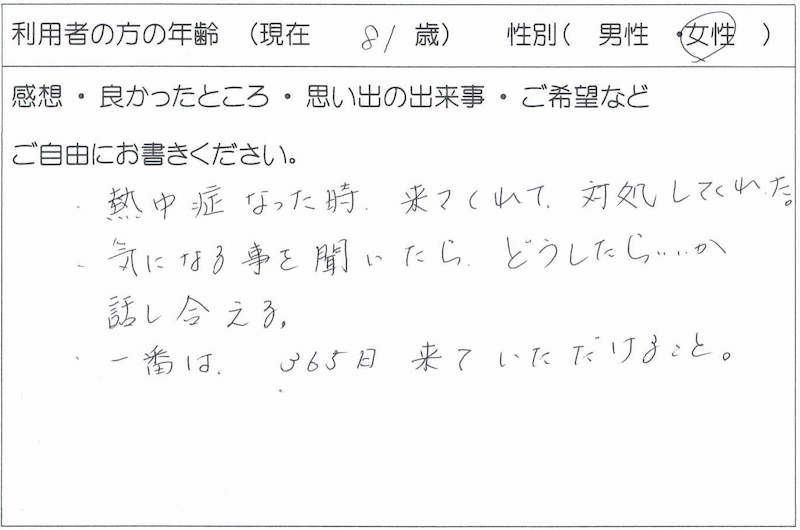 利用者の方の年齢 (現在 81 歳) 性別( 男性 ・女性 )
感想・良かったところ・思い出の出来事・ご希望など
ご自由にお書きください。
・熱中症なった時、来てくれて、対処してくれた。
・気になる事を聞いたら、どうしたらいいか
話し合える。
・一番は、365日来ていただけること。